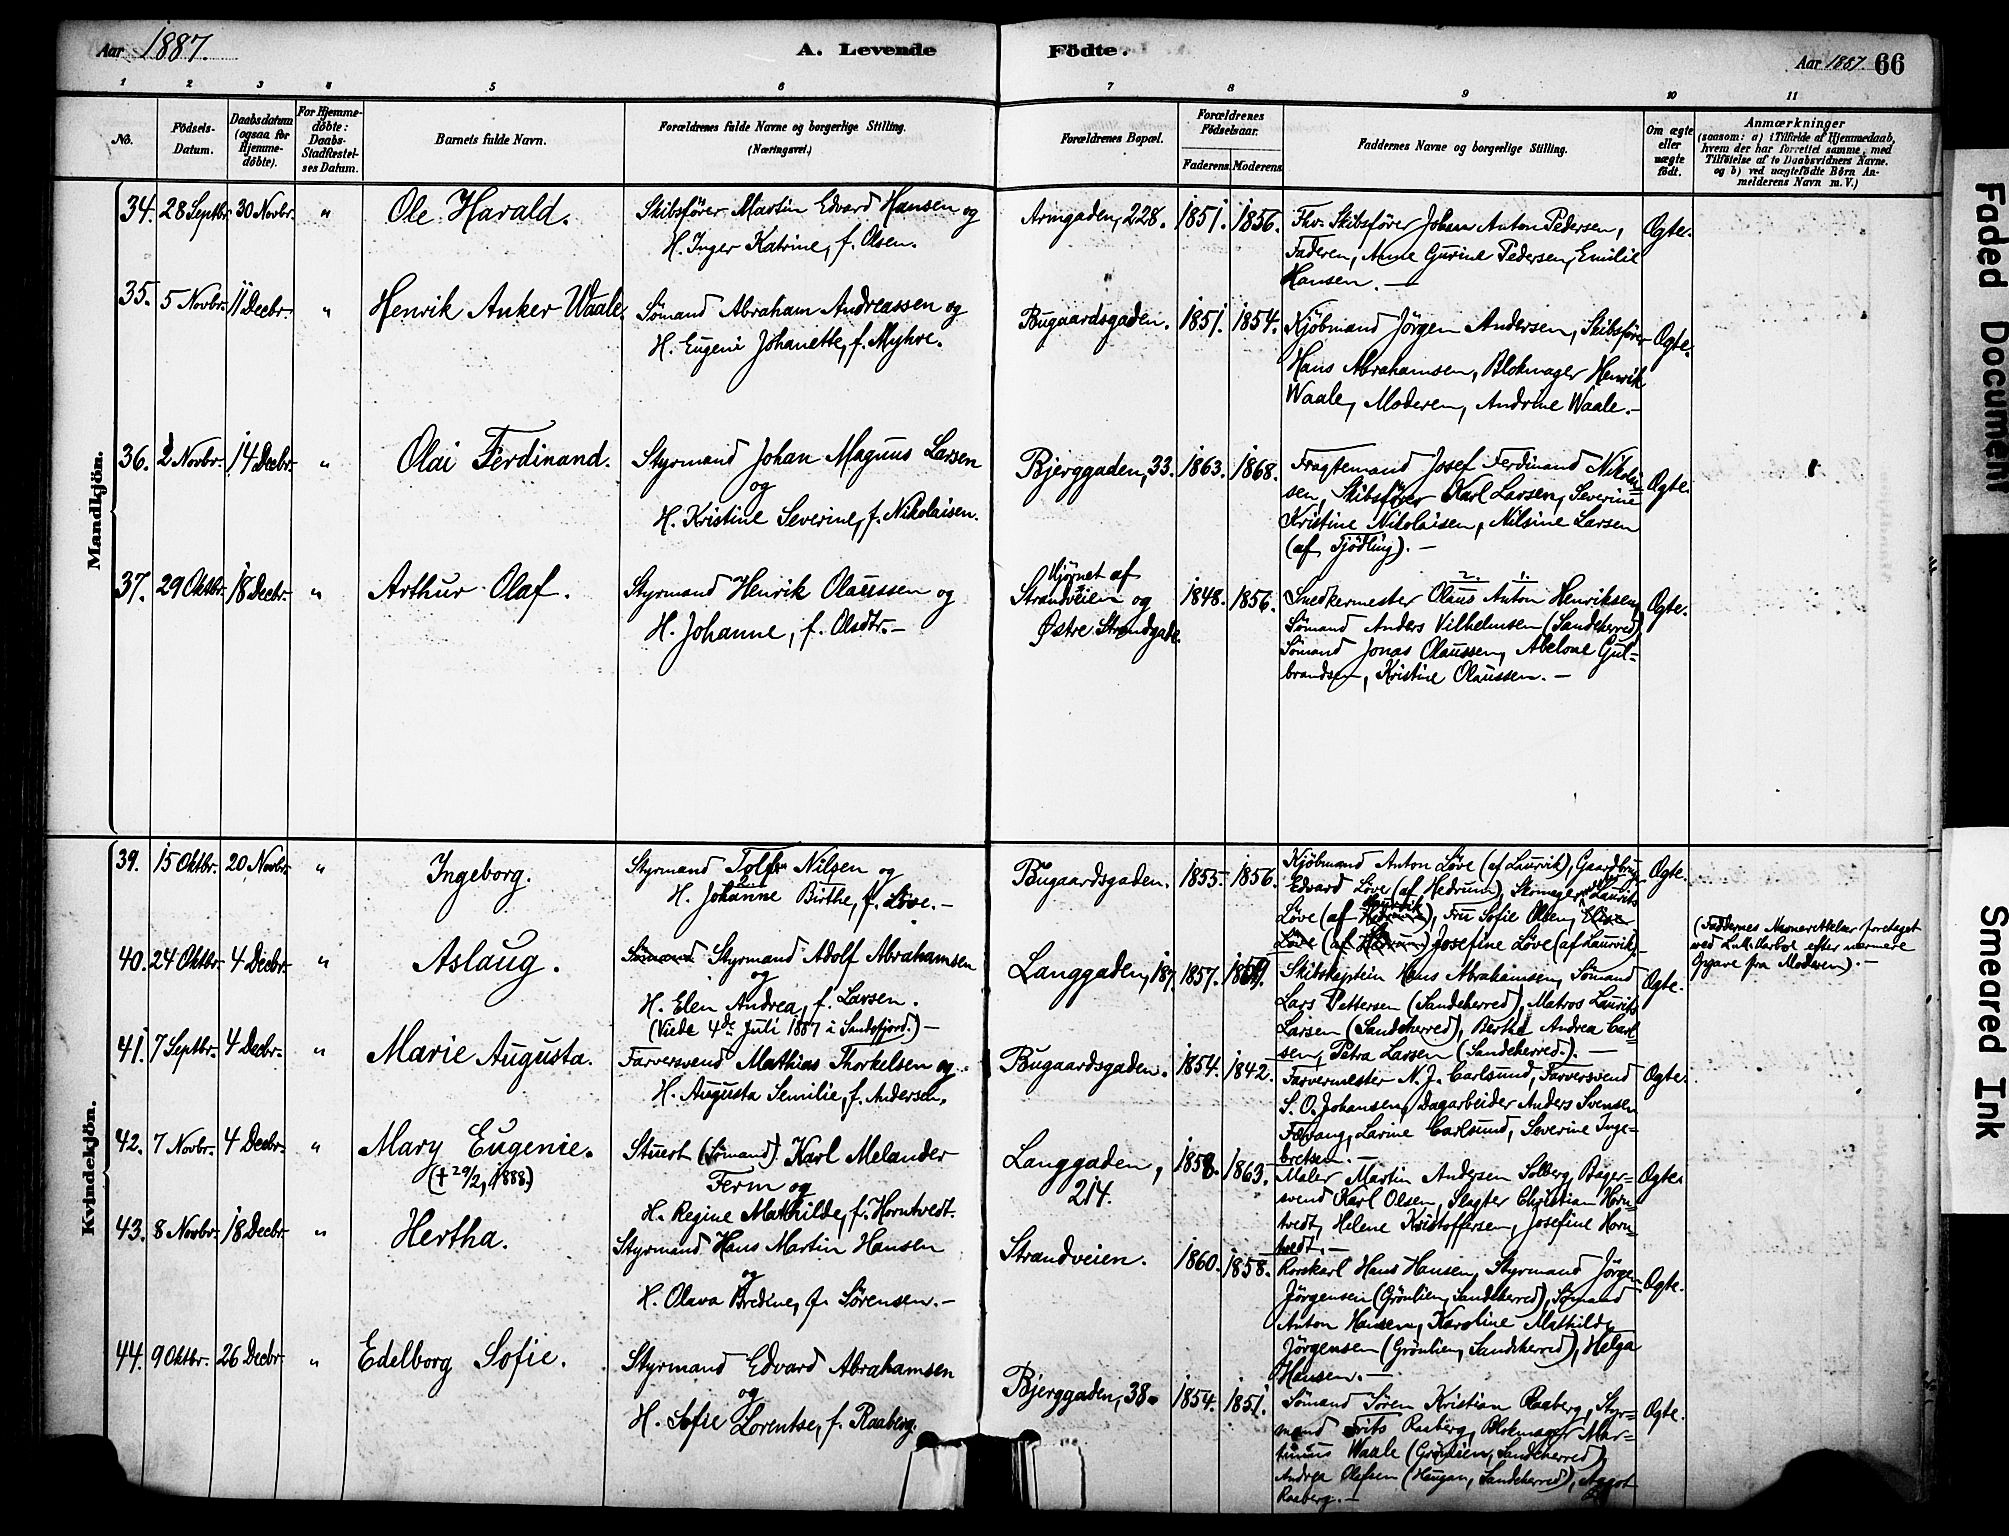 Aar 1887.
A. Levende
Födte.
Aar 1887. 66
1 2 3 4 5 6 7 8 9 10 11
No.
Födsels-
Datum.
Daabsdatum
(ogsaa for
Hjemme-
döbte).
For Hjemme-
döbte:
Daabs-
Stadfæstel-
ses Datum.
Barnets fulde Navn.
Forældrenes fulde Navne og borgerlige Stilling.
(Næringsvei.)
Forældrenes Bopæl.
Forældrenes
Födselsaar.
Faderens. Moderens.
Faddernes Navne og borgerlige Stilling.
Om ægte
eller
uægte
født.
Anmærkninger
(saasom: a) i Tilfælde af Hjemmedaab,
hvem der har forrettet samme, med
Tilföielse af to Daabsvidners Navne.
og b) ved uægtefödte Börn An-
melderens Navn m. V.)
Mandkjön.
34. 28 Septbr. 30 Novbr. "
Ole Harald.
Skibsfører Martin Edvard Hansen og
H. Inger Katrine, f. Olsen.
Armgaden, 228. 1851. 1856.
Fhv. Skibsfører Johan Anton Pedersen,
Faderen, Anne Gurine Pedersen, Emilie
Hansen. —
Ægte.
35. 5 Novbr. 11 Decbr. "
Henrik Anker Waale.
Sømand Abraham Andreassen og
H. Eugeni Johanette, f. Myhre.
Bugaardsgaden. 1851. 1854.
Kjøbmand Jörgen Andersen, Skibsfører
Hans Abrahamsen, Blokmager Henrik
Waale, Moderen, Andrine Waale. —
Ægte.
36. 2 Novbr. 14 Decbr. "
Olai Ferdinand.
Styrmand Johan Magnus Larsen
og
H. Kristine Severine, f. Nikolaisen.
Bjerggaden, 33. 1863. 1868.
Fragtemand Josef Ferdinand Nikolai=
sen, Skibsfører Karl Larsen, Severine
Kristine Nikolaisen, Nilsine Larsen
(af Tjödling). —
Ægte.
37. 29 Oktbr. 18 Decbr. "
Arthur Olaf.
Styrmand Henrik Olaussen og
H. Johanne, f. Olsdtr. —
Hjørnet af
Strandveien og
Østre Strandgade.
1848. 1856.
2. 1.
Snedkermester Olaus Anton Henriksen,
Sømand Anders Vilhelmsen (Sandeherred)
Sømand Jonas Olaussen, Abelone Gul=
brandsen, Kristine Olaussen. —
Ægte.
Kvindekjön.
39. 15 Oktbr. 20 Novbr. "
Ingeborg.
Styrmand Tolf Nilsen og
H. Johanne Birthe, f. Löve. —
Bugaardsgaden. 1855. 1856.
Kjöbmand Anton Löve (af Laurvik), Gaardbrug-
Edvard Löve (af Hedrum), Skomager Laurits
Löve (af Laurvik), Fru Sofie Olsen, Elise
Löve (af Hedrum) Josefine Löve (af Laurvik).
Ægte.
(Faddernes Navnerettelser foretaget
ved efter nærmere
Opgave fra Moderen). —
40. 24 Oktbr. 4 Decbr. "
Aslaug.
Sömand Styrmand Adolf Abrahamsen
og
H. Elen Andrea, f. Larsen.
(Viede 4de Juli 1887 i Sandefjord.) —
Langgaden, 187. 1857.
Skibskaptein Hans Abrahamsen, Sömand
Lars Pettersen (Sandeherred), Matros Laurits
Larsen (Sandeherred), Berthe Andrea Carl=
sen, Petra Larsen (Sandeherred.). —
Ægte.
41. 7 Septbr. 4 Decbr. "
Marie Augusta.
Farversvend Mathias Thorkelsen og
H. Augusta Semilie, f. Andersen.
Bugaardsgaden. 1854. 1842.
Farvermester N. J. Carlsund, Farversvend
S. O. Johansen, Dagarbeider Anders Svensen
Fevang, Larine Carlsund, Severine Inge=
bretsen. —
Ægte.
42. 7 Novbr. 4 Decbr. "
Mary Eugenie.
(† 29/2, 1888.)
Stuert (Sømand) Karl Melander
Ferm og
H. Regine Mathilde, f. Horntvedt.
Langgaden,
214.
1858. 1863.
Maler Martin Andersen Solberg, Bager=
svend Karl Olsen, Slagter Christian Horn=
tvedt, Helene Kristoffersen, Josefine Horn=
tvedt. —
Ægte.
43. 8 Novbr. 18 Decbr. "
Hertha.
Styrmand Hans Martin Hansen
og
H. Olava Bredine, f. Sörensen. —
Strandveien. 1860. 1858.
Rorskarl Hans Hansen, Styrmand Jörgen
Jörgensen (Grönlien, Sandeherred), Sömand
Anton Hansen, Karoline Mathilde
Jörgensen (Grönlien, Sandeherred), Helga
Hansen. —
Ægte.
44. 9 Oktbr. 26 Decbr. "
Edelborg Sofie.
Styrmand Edvard Abrahamsen
og
H. Sofie Lorentse, f. Raaberg.
Bjerggaden, 38. 1854. 1851.
Sömand Sören Kristian Raaberg, Styr=
mand Frits Raaberg, Blokmager Mar=
tinius Waale (Grönlien, Sandeherred)
Andrea Olafsen (Haugan, Sandeherred), Aagot
Raaberg. —
Ægte.
Faded Document
Smeared Ink